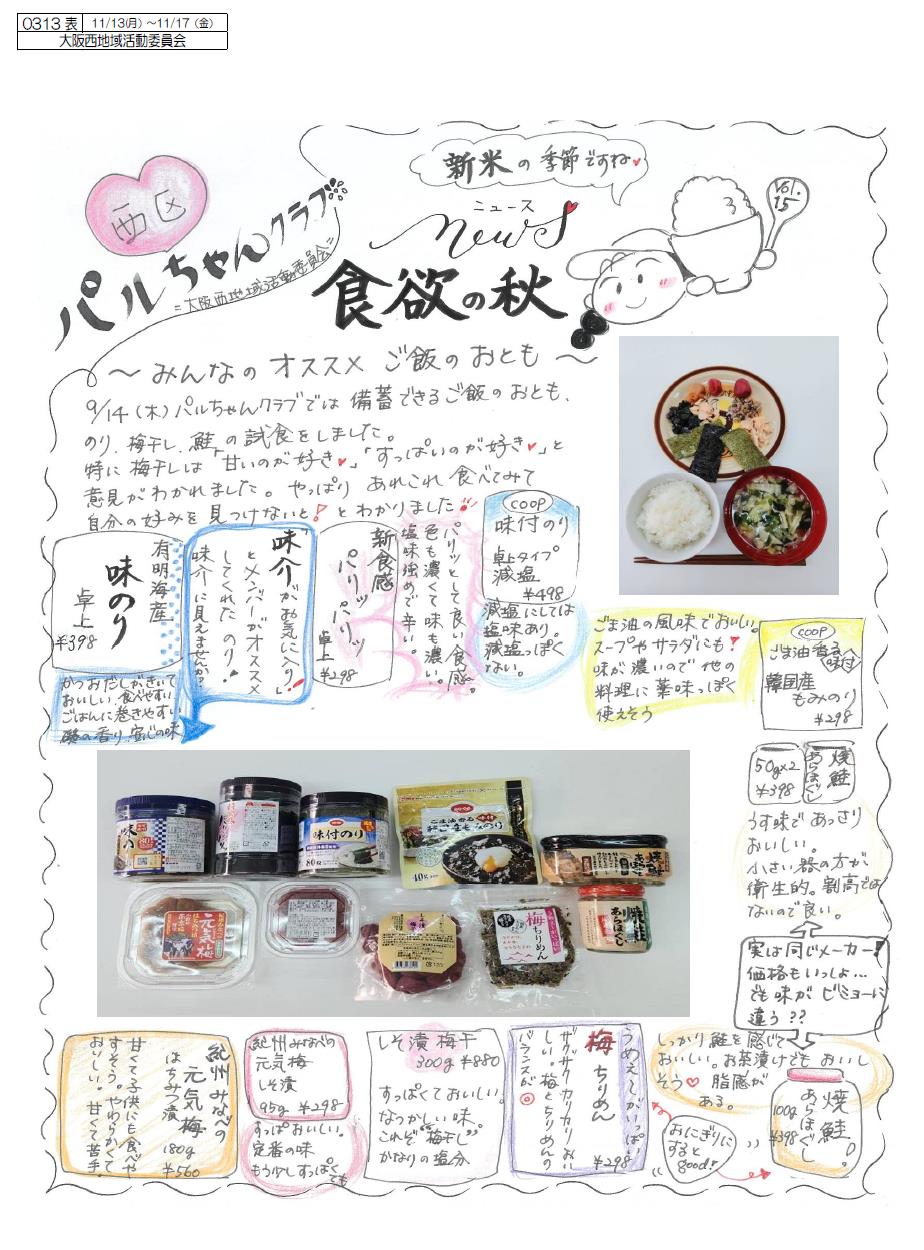 0313 表
11/13(月) ～11/17 (金)
大阪西地域活動委員会
新米の季節ですね
西区
パルちゃんクラブ
=大阪西地域活動委員会=
ニュース
news
Vol.
15
食欲の秋
～みんなのオススメ ご飯のおとも～
9/14 (木) パルちゃんクラブでは 備蓄できるご飯のおとも、
のり、梅干し、鮭の試食をしました。
特に 梅干しは「甘いのが好き♥」「すっぱいのが好き♥」と
意見がわかれました。やっぱり あれこれ食べてみて
自分の好みを 見つけないと! とわかりました!!
有明海産
味のり
卓上
¥398
かつおだしがきいて
おいしい 食べやすい
ごはんに巻きやすい
磯の香り、安心の味
「味介がお気に入り」
とメンバーがオススメ
してくれた のり!
味介に見えませんか?
新食感
パリッパリッ
卓上
¥298
パリッとして良い食感。
色も濃くて味も濃い。
塩味強めで辛い。
coop
味付のり
卓上タイプ
減塩
¥498
減塩にしては
塩味あり。
減塩っぽく
ない。
ごま油の風味でおいしい。
スープやサラダにも!
味が濃いので他の
料理に薬味っぽく
使えそう
coop
ごま油香る
味付
韓国産
もみのり
¥298
焼鮭
あらほぐし
50g×2
¥398
うす味であっさり
おいしい。
小さい器の方が
衛生的。割高では
ないので良い。
実は同じメーカー!
価格もいっしょ…
でも味が ビミョーに
違う??
しっかり鮭を感じて
おいしい。お茶漬けでも おいし
そう♡ 脂感が
ある。
焼鮭
あらほぐし
100g
¥398
おにぎりに
すると
good!
味付のり
80枚
40g
元気梅
梅ちりめん
紀州みなべの
元気梅
はちみつ漬
180g
¥560
甘くて子供にも食べや
すそう。やわらかくて
おいしい。甘くて苦手。
紀州みなべの
元気梅
しそ漬
95g ¥298
すっぱおいしい。
定番の味
もう少しすっぱくても
しそ漬梅干
300g ¥880
すっぱくておいしい。
なつかしい味
これぞ"梅干し"
かなりの塩分
うめえしがいっぱい
梅ちりめん
¥298
ザクザクカリカリおい
しい。梅とちりめんの
バランスが◎